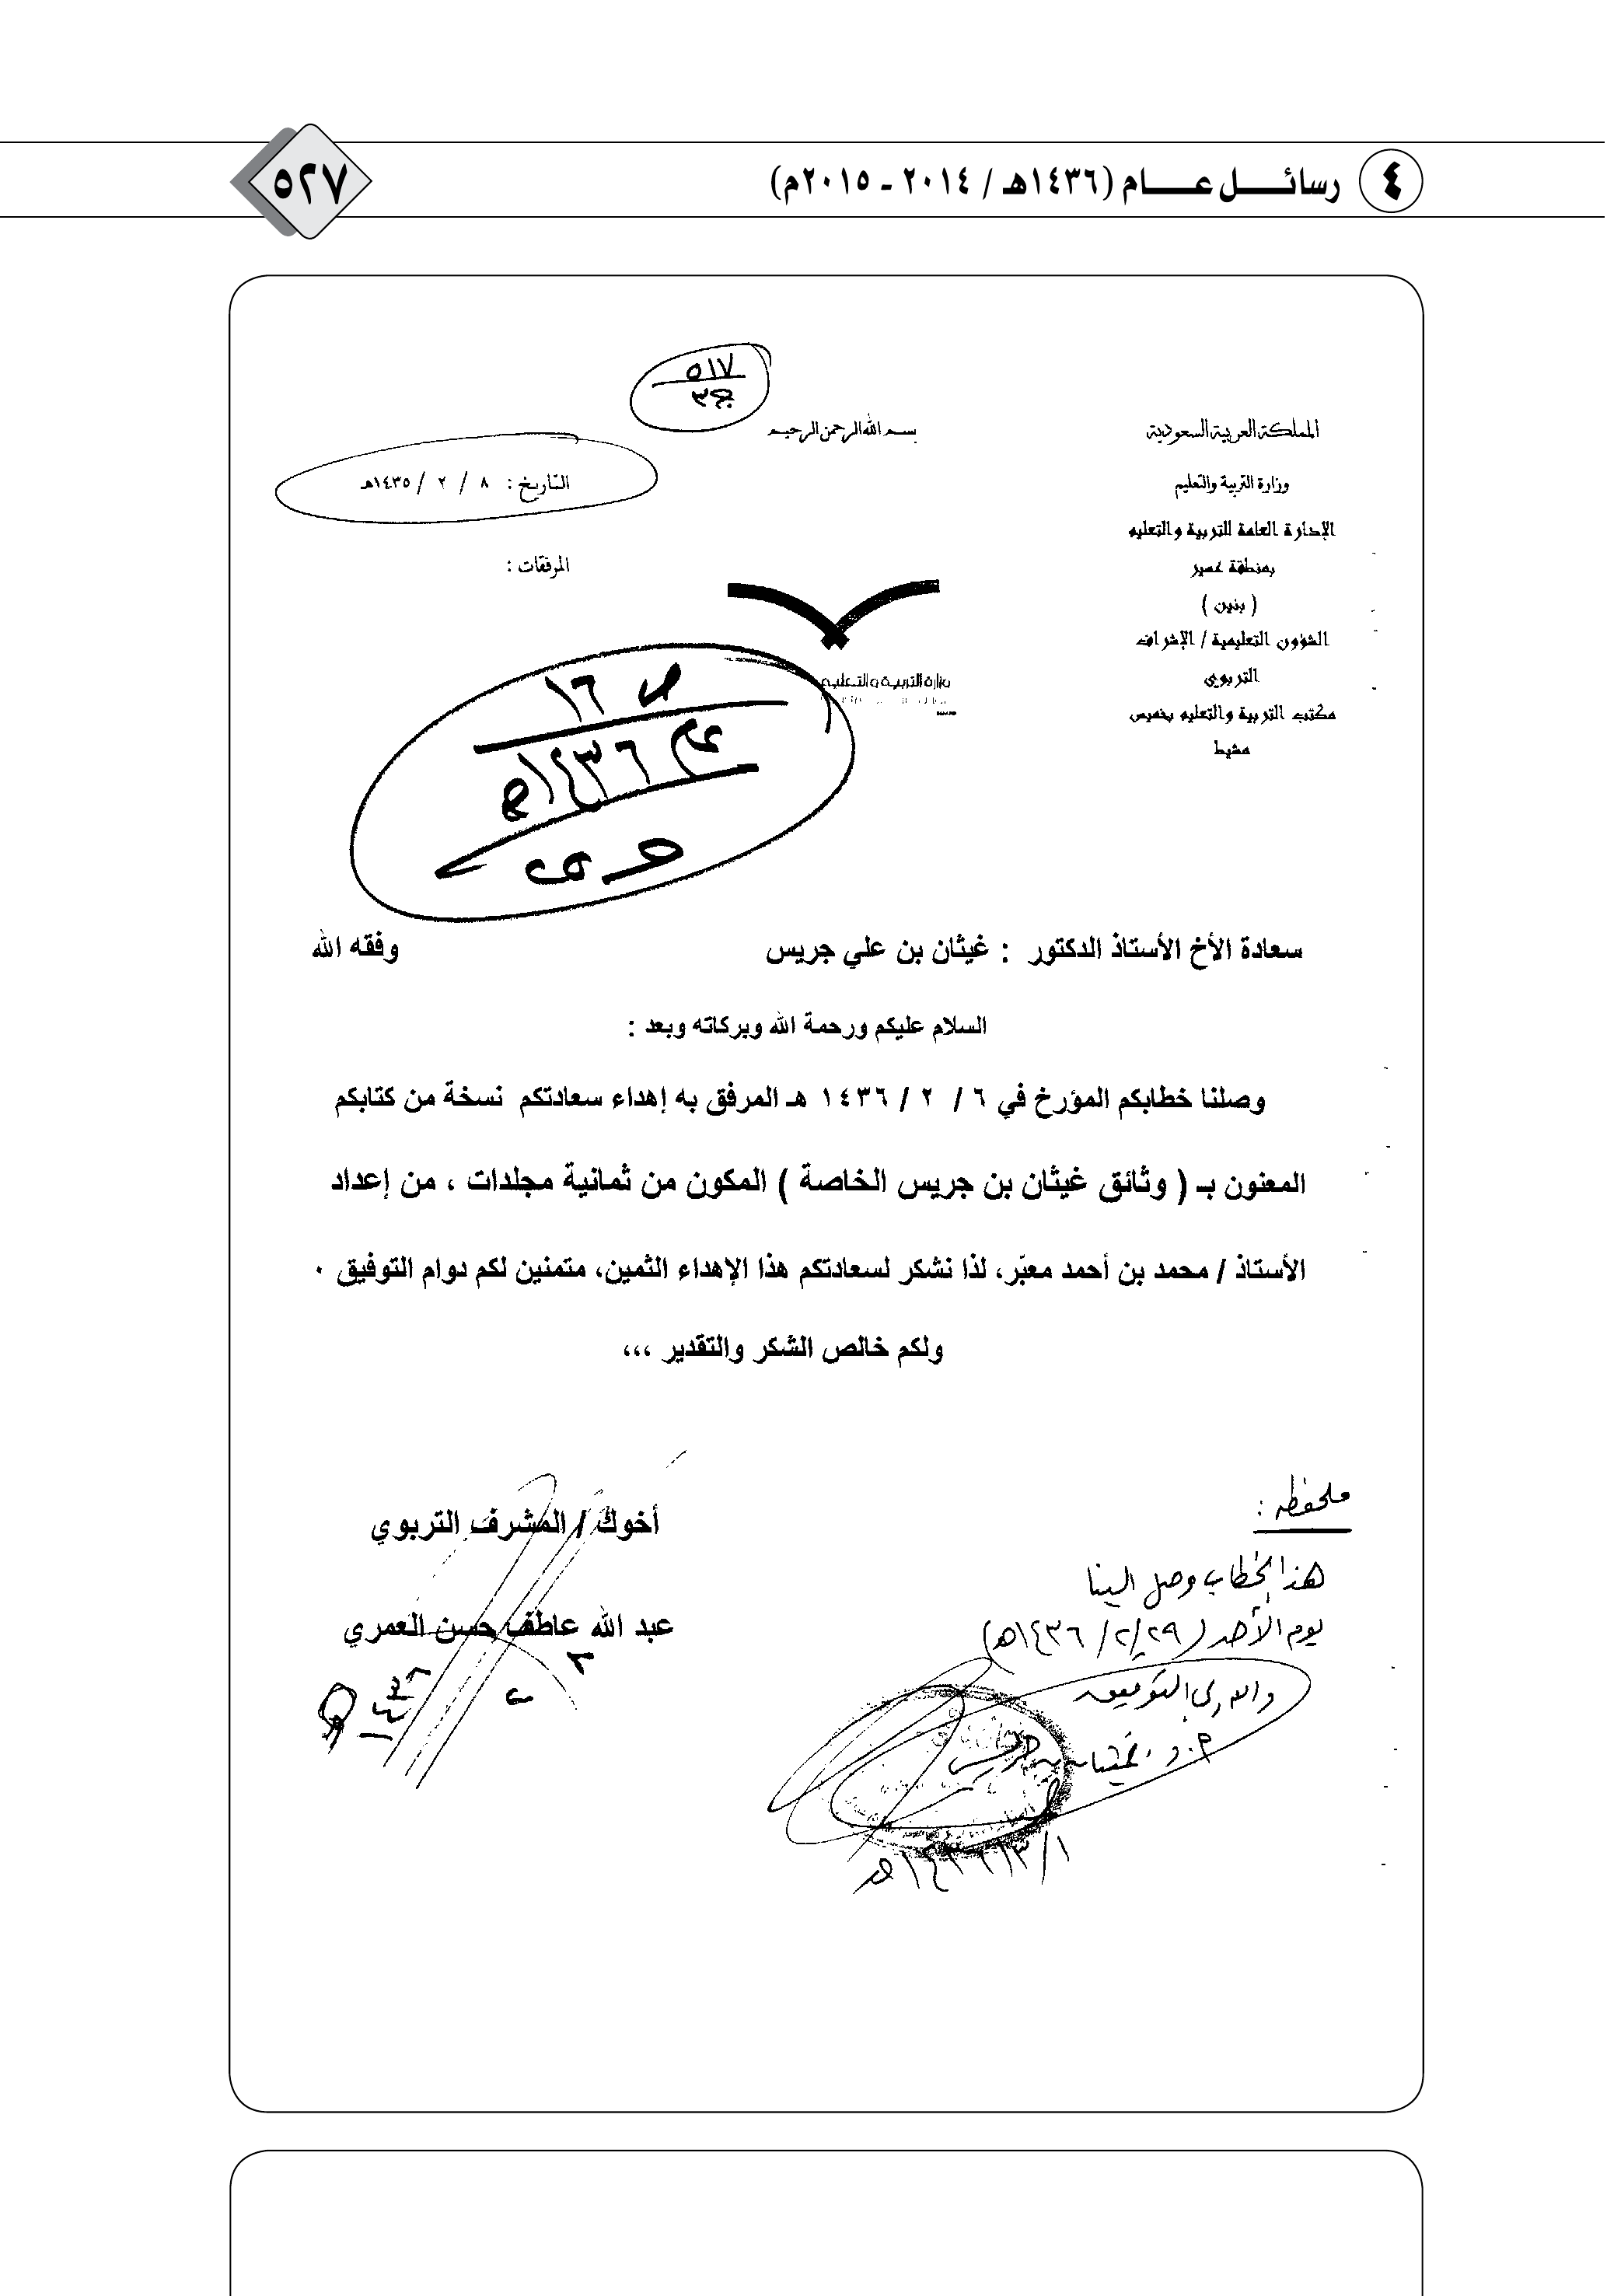 ٤ رسائل عام (١٤٣٦هـ / ٢٠١٤ - ٢٠١٥م)
٥٢٧
٥١٧
ج٣
بسم الله الرحمن الرحيم
المملكة العربية السعودية
وزارة التربية والتعليم
الإدارة العامة للتربية والتعليم
بمنطقة عسير
( بنين )
الشؤون التعليمية / الإشراف
التربوي
مكتب التربية والتعليم بخميس
مشيط
التاريخ : ٨ / ٢ / ١٤٣٥هـ
المرفقات :
وزارة التربية والتعليم
ص ١٦
عام ١٤٣٦هـ
سعادة الأخ الأستاذ الدكتور : غيثان بن علي جريس وفقه الله
السلام عليكم ورحمة الله وبركاته وبعد :
وصلنا خطابكم المؤرخ في ٦ / ٢ / ١٤٣٦ هـ المرفق به إهداء سعادتكم نسخة من كتابكم
المعنون بـ ( وثائق غيثان بن جريس الخاصة ) المكون من ثمانية مجلدات ، من إعداد
الأستاذ / محمد بن أحمد معبّر، لذا نشكر لسعادتكم هذا الإهداء الثمين، متمنين لكم دوام التوفيق ٠
ولكم خالص الشكر والتقدير ،،،
أخوك / المشرف التربوي
عبد الله عاطف حسن العمري
ملحظه :
هذا الخطاب وصل الينا
يوم الأحد (٢٩/ ٢/ ١٤٣٦هـ)
والله ولي التوفيق
أ.د. غيثان بن جريس
١/ ٣/ ١٤٣٦هـ